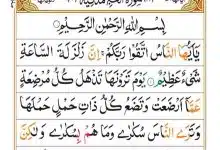 بِسْمِ اللهِ الرَّحْمٰنِ الرَّحِيْمِ
يٰٓاَيُّهَا النَّاسُ اتَّقُوْا رَبَّكُمْ ۚ اِنَّ زَلْزَلَةَ السَّاعَةِ
شَيْءٌ عَظِيْمٌ ۝ يَوْمَ تَرَوْنَهَا تَذْهَلُ كُلُّ مُرْضِعَةٍ
عَمَّاۤ اَرْضَعَتْ وَتَضَعُ كُلُّ ذَاتِ حَمْلٍ حَمْلَهَا
وَتَرَى النَّاسَ سُكٰرٰى وَمَا هُمْ بِسُكٰرٰى وَلٰكِنَّ